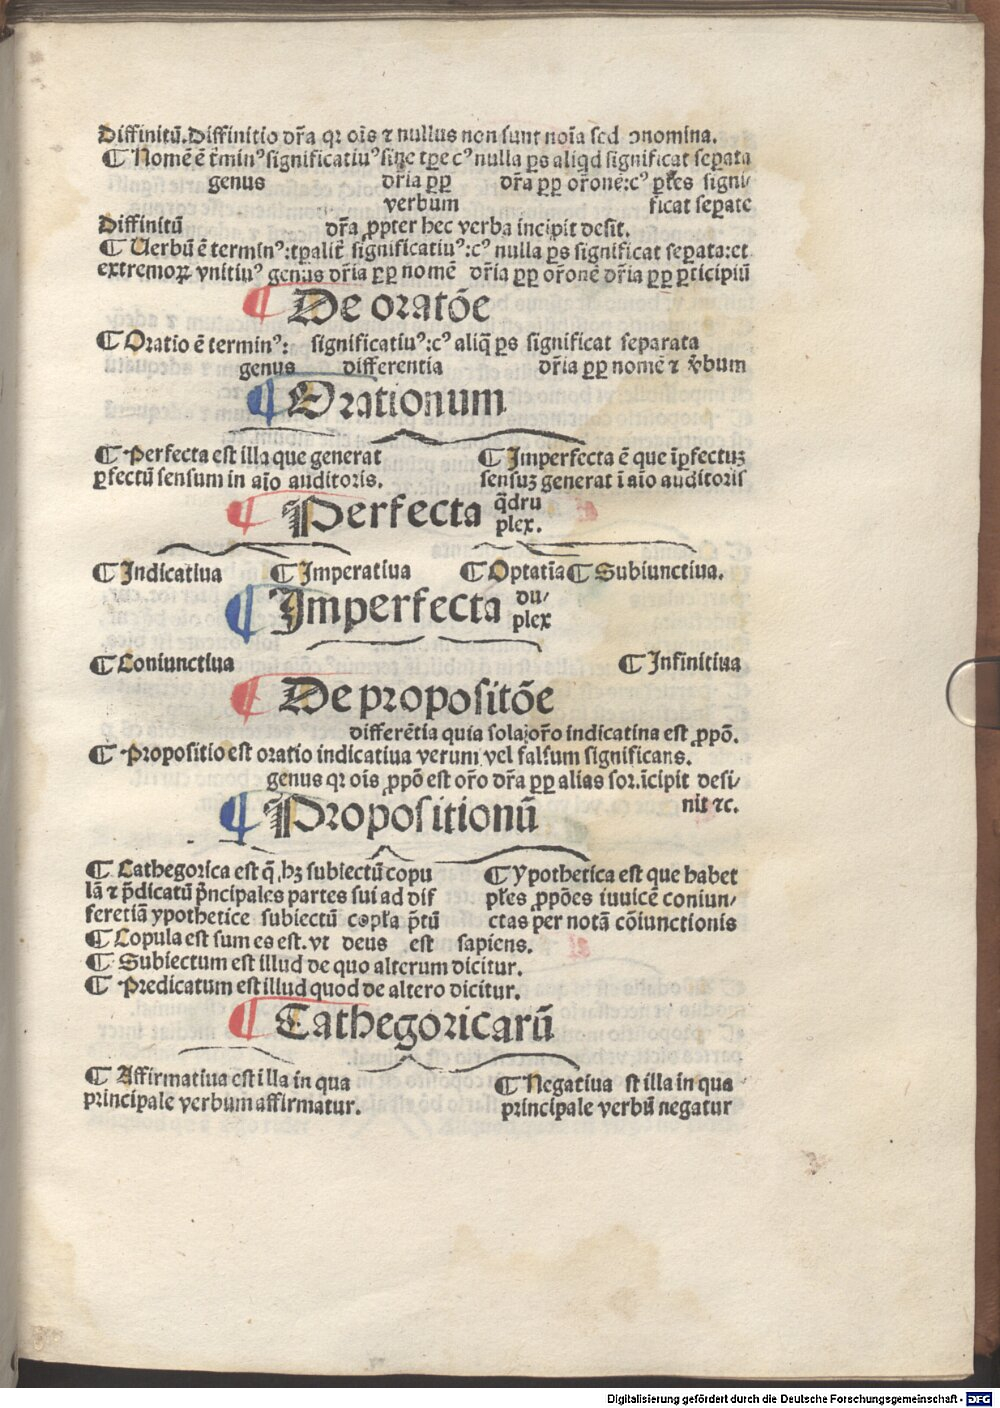 Diffinitū. Diffinitio dr̄a qꝛ oīs ⁊ nullus non sunt noīa sed ꝓnomina.
¶ Nomē ē t̄minꝰ significatiuꝰ sine tp̄e cꝰ nulla ps aliqd significat sep̄ata
genus dr̄ia ꝑꝑ dr̄a ꝑꝑ or̄onē: cꝰ pl̄es signi/
verbum ficat sep̄ate
Diffinitū dr̄a ꝓpter hec verba incipit desit.
¶ Uerbū ē terminꝰ: tp̄alit̄ significatiuꝰ: cꝰ nulla ps significat sep̄ata: et
extremoꝝ vnitiuꝰ genus dr̄ia ꝑꝑ nomē dr̄ia ꝑꝑ or̄onē dr̄ia ꝑꝑ ꝑticipiū
¶ De oratōe
¶ Oratio ē terminꝰ: significatiuꝰ: cꝰ aliq̄ ps significat separata
genus differentia dr̄ia ꝑꝑ nomē ⁊ v̄bum
¶ Orationum
¶ Perfecta est illa que generat ¶ Imperfecta ē que īꝑfectuꝫ
ꝑfectū sensum in aīo auditoris. sensuꝫ generat ī aīo auditoris
¶ Perfecta q̄dru
plex.
¶ Indicatiua ¶ Imperatiua ¶ Optatīa ¶ Subiunctiua.
¶ Imperfecta du/
plex
¶ Coniunctiua ¶ Infinitiua
¶ De propositōe
differētia quia sola or̄o indicatina est ꝓpō.
¶ Propositio est oratio indicatiua verum vel falsum significans.
genus qꝛ oīs ꝓpō est or̄o dr̄a ꝑꝑ alias sor. īcipit desi/
nit ⁊c.
¶ Propositionū
¶ Cathegorica est q̄ hꝫ subiectū copu ¶ Ypothetica est que habet
lā ⁊ p̄dicatū p̄ncipales partes sui ad dif pl̄es ꝓpōes iuuicē coniun/
feretiā ypothetice subiectū copl̄a p̄tū ctas per notā cōiunctionis
¶ Copula est sum es est. vt deus est sapiens.
¶ Subiectum est illud de quo alterum dicitur.
¶ Predicatum est illud quod de altero dicitur.
¶ Cathegoricarū
¶ Affirmatiua est illa in qua ¶ Negatiua st illa in qua
principale verbum affirmatur. principale verbū negatur
Digitalisierung gefördert durch die Deutsche Forschungsgemeinschaft - DFG